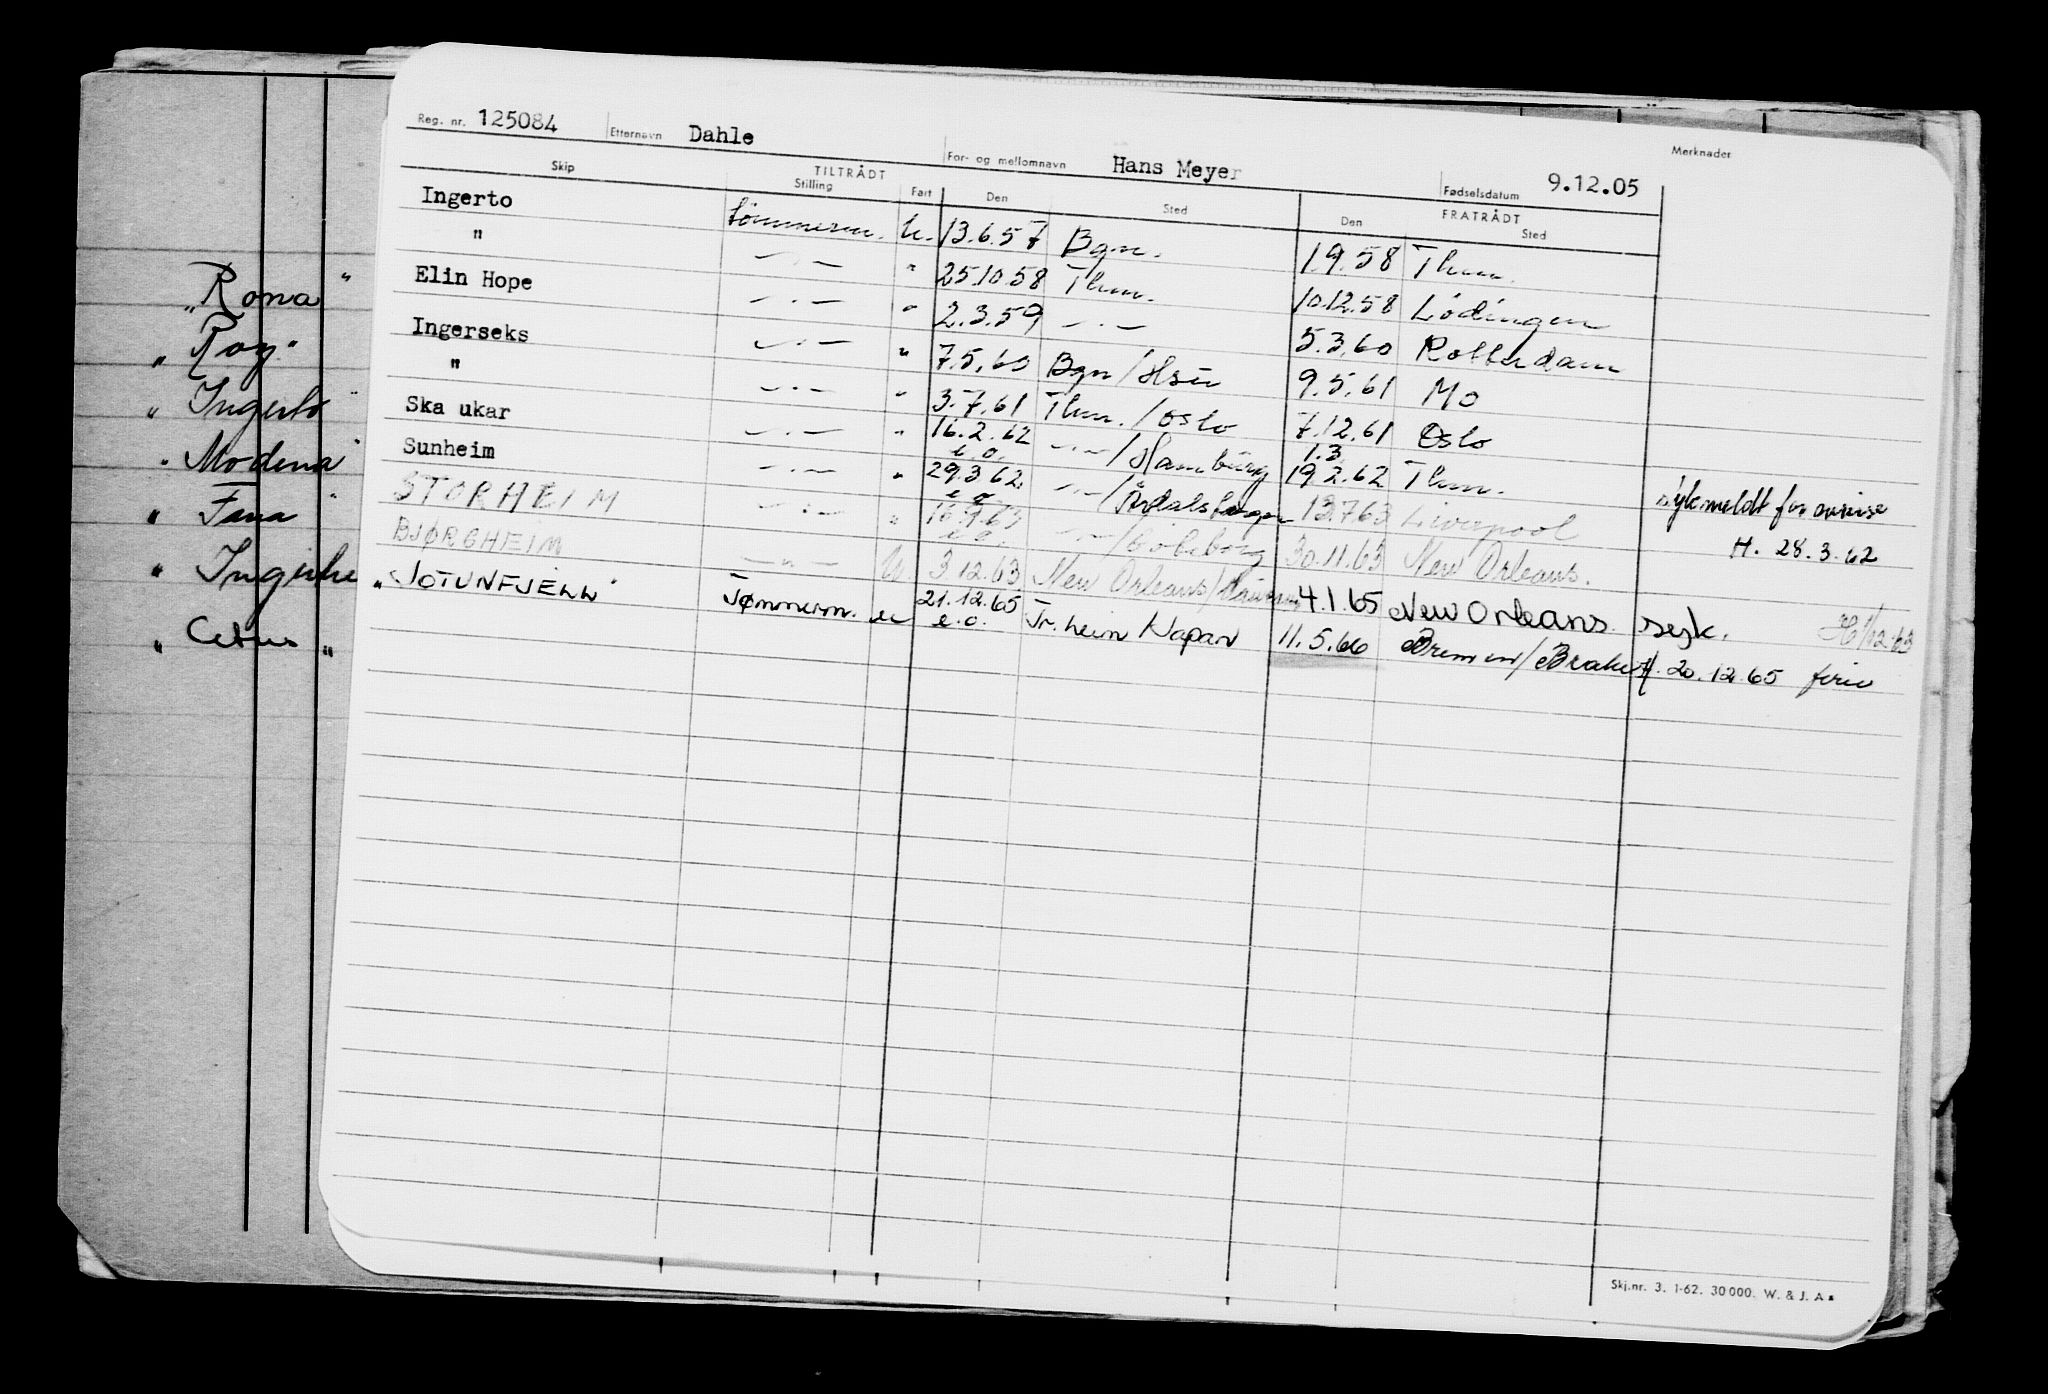 Reg. nr. 125084 Etternavn Dahle For- og mellomnavn Hans Meyer Fødselsdatum 9.12.05 Merknader
Skip TILTRÅDT Stilling Fart Den Sted FRATRÅDT Den Sted
Ingerto tömmerm. U. 13.6.57 Bgn. 1.9.58 Thm.
" —·— " 25.10.58 Thm. 10.12.58 Lödingen
Elin Hope —·— " 2.3.59 —·— 5.3.60 Rotterdam
Ingerseks —·— " 7.5.60 Bgn/Hsu 9.5.61 Mo
" —·— " 3.7.61 Thm./Oslo 7.12.61 Oslo
Ska ukar —·— " 16.2.62 e.o. —·—/Hamburg 1.3. 19.2.62 Thm.
Sunheim —·— " 29.3.62. e.o. —·—/Årdalstangen 13.7.63 Liverpool sykmeldt for avreise
H. 28.3.62
STORHEIM —·— " 16.9.63 e.o. —·—/Göteborg 30.11.63 New Orleans.
BJØRGHEIM —·— U 3.12.63 New Orleans/ 4.1.65 New Orleans. syk. H 1/12-63
"JOTUNFJELL" Tømmerm. u 21.12.65 e.o. Tr.heim/Japan 11.5.66 Bremen/Brake H. 20.12.65 ferie
"Rona"
"Roy"
"Ingerto"
"Modena"
"Fana"
"Ingerhe
"Cetus"
Skj.nr. 3. 1-62. 30000. W. & J. A s